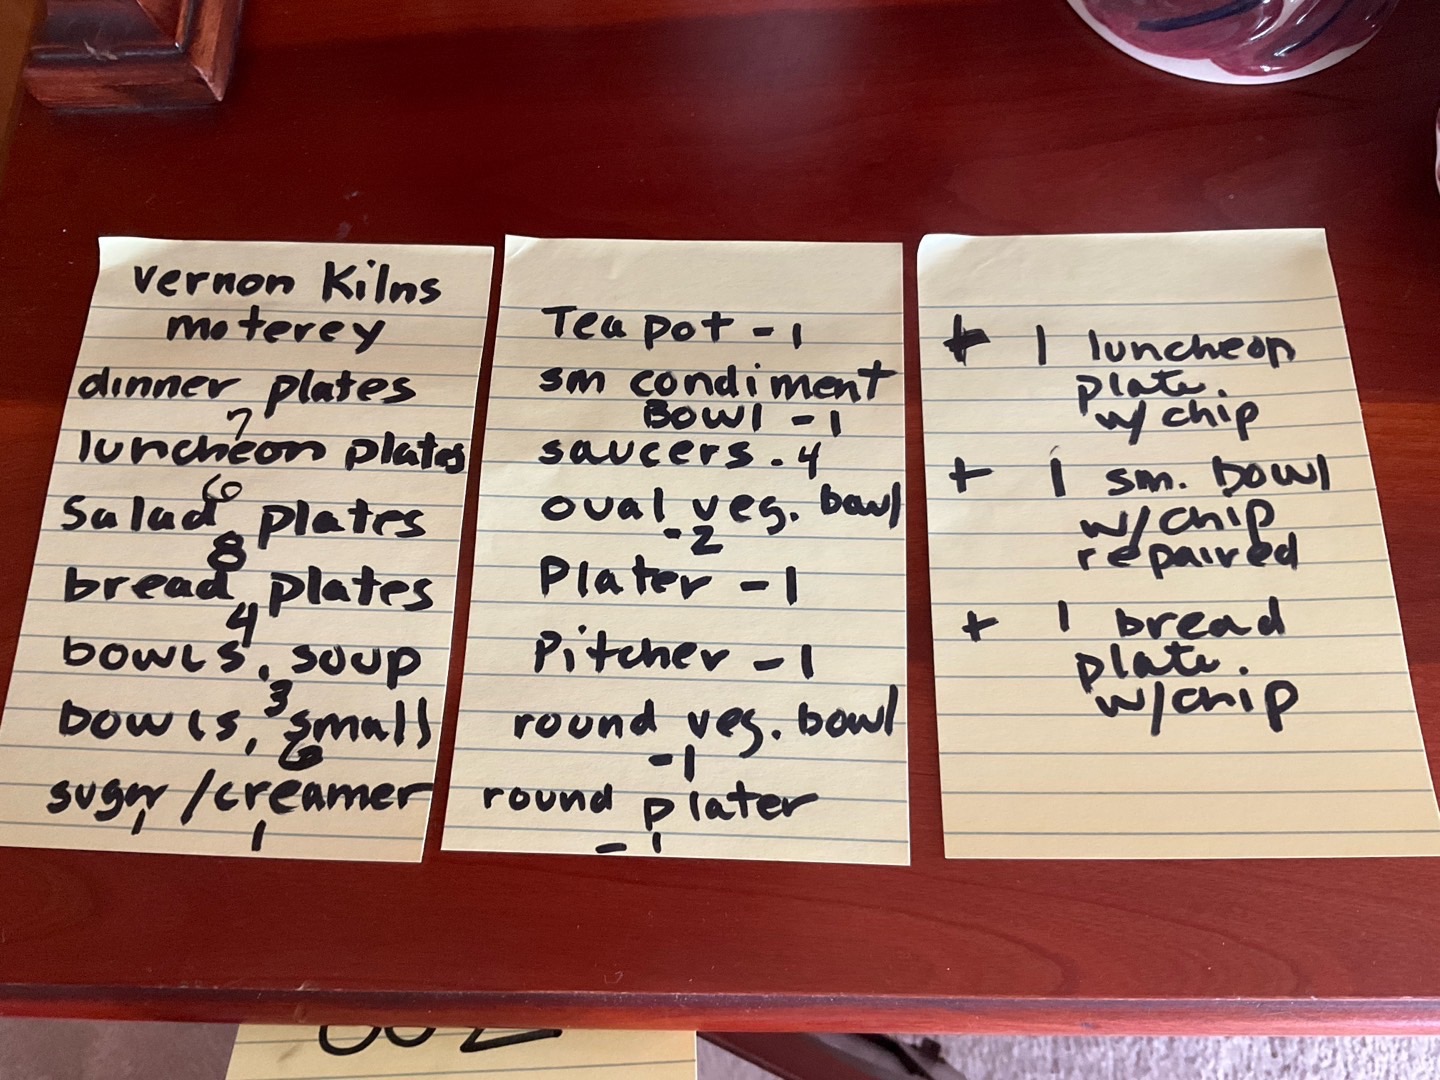 vernon Kilns
moterey
dinner plates
7
luncheon plates
6
Salad plates
8
bread plates
4
bowls, soup
3
bowls, small
6
sugar /creamer
1 1
Tea pot - 1
sm condiment
Bowl - 1
saucers. 4
oval veg. bowl
- 2
Plater - 1
Pitcher - 1
round veg. bowl
- 1
round plater
- 1
+ 1 luncheon
plate.
w/ chip
+ 1 sm. bowl
w/chip
repaired
+ 1 bread
plate.
w/chip